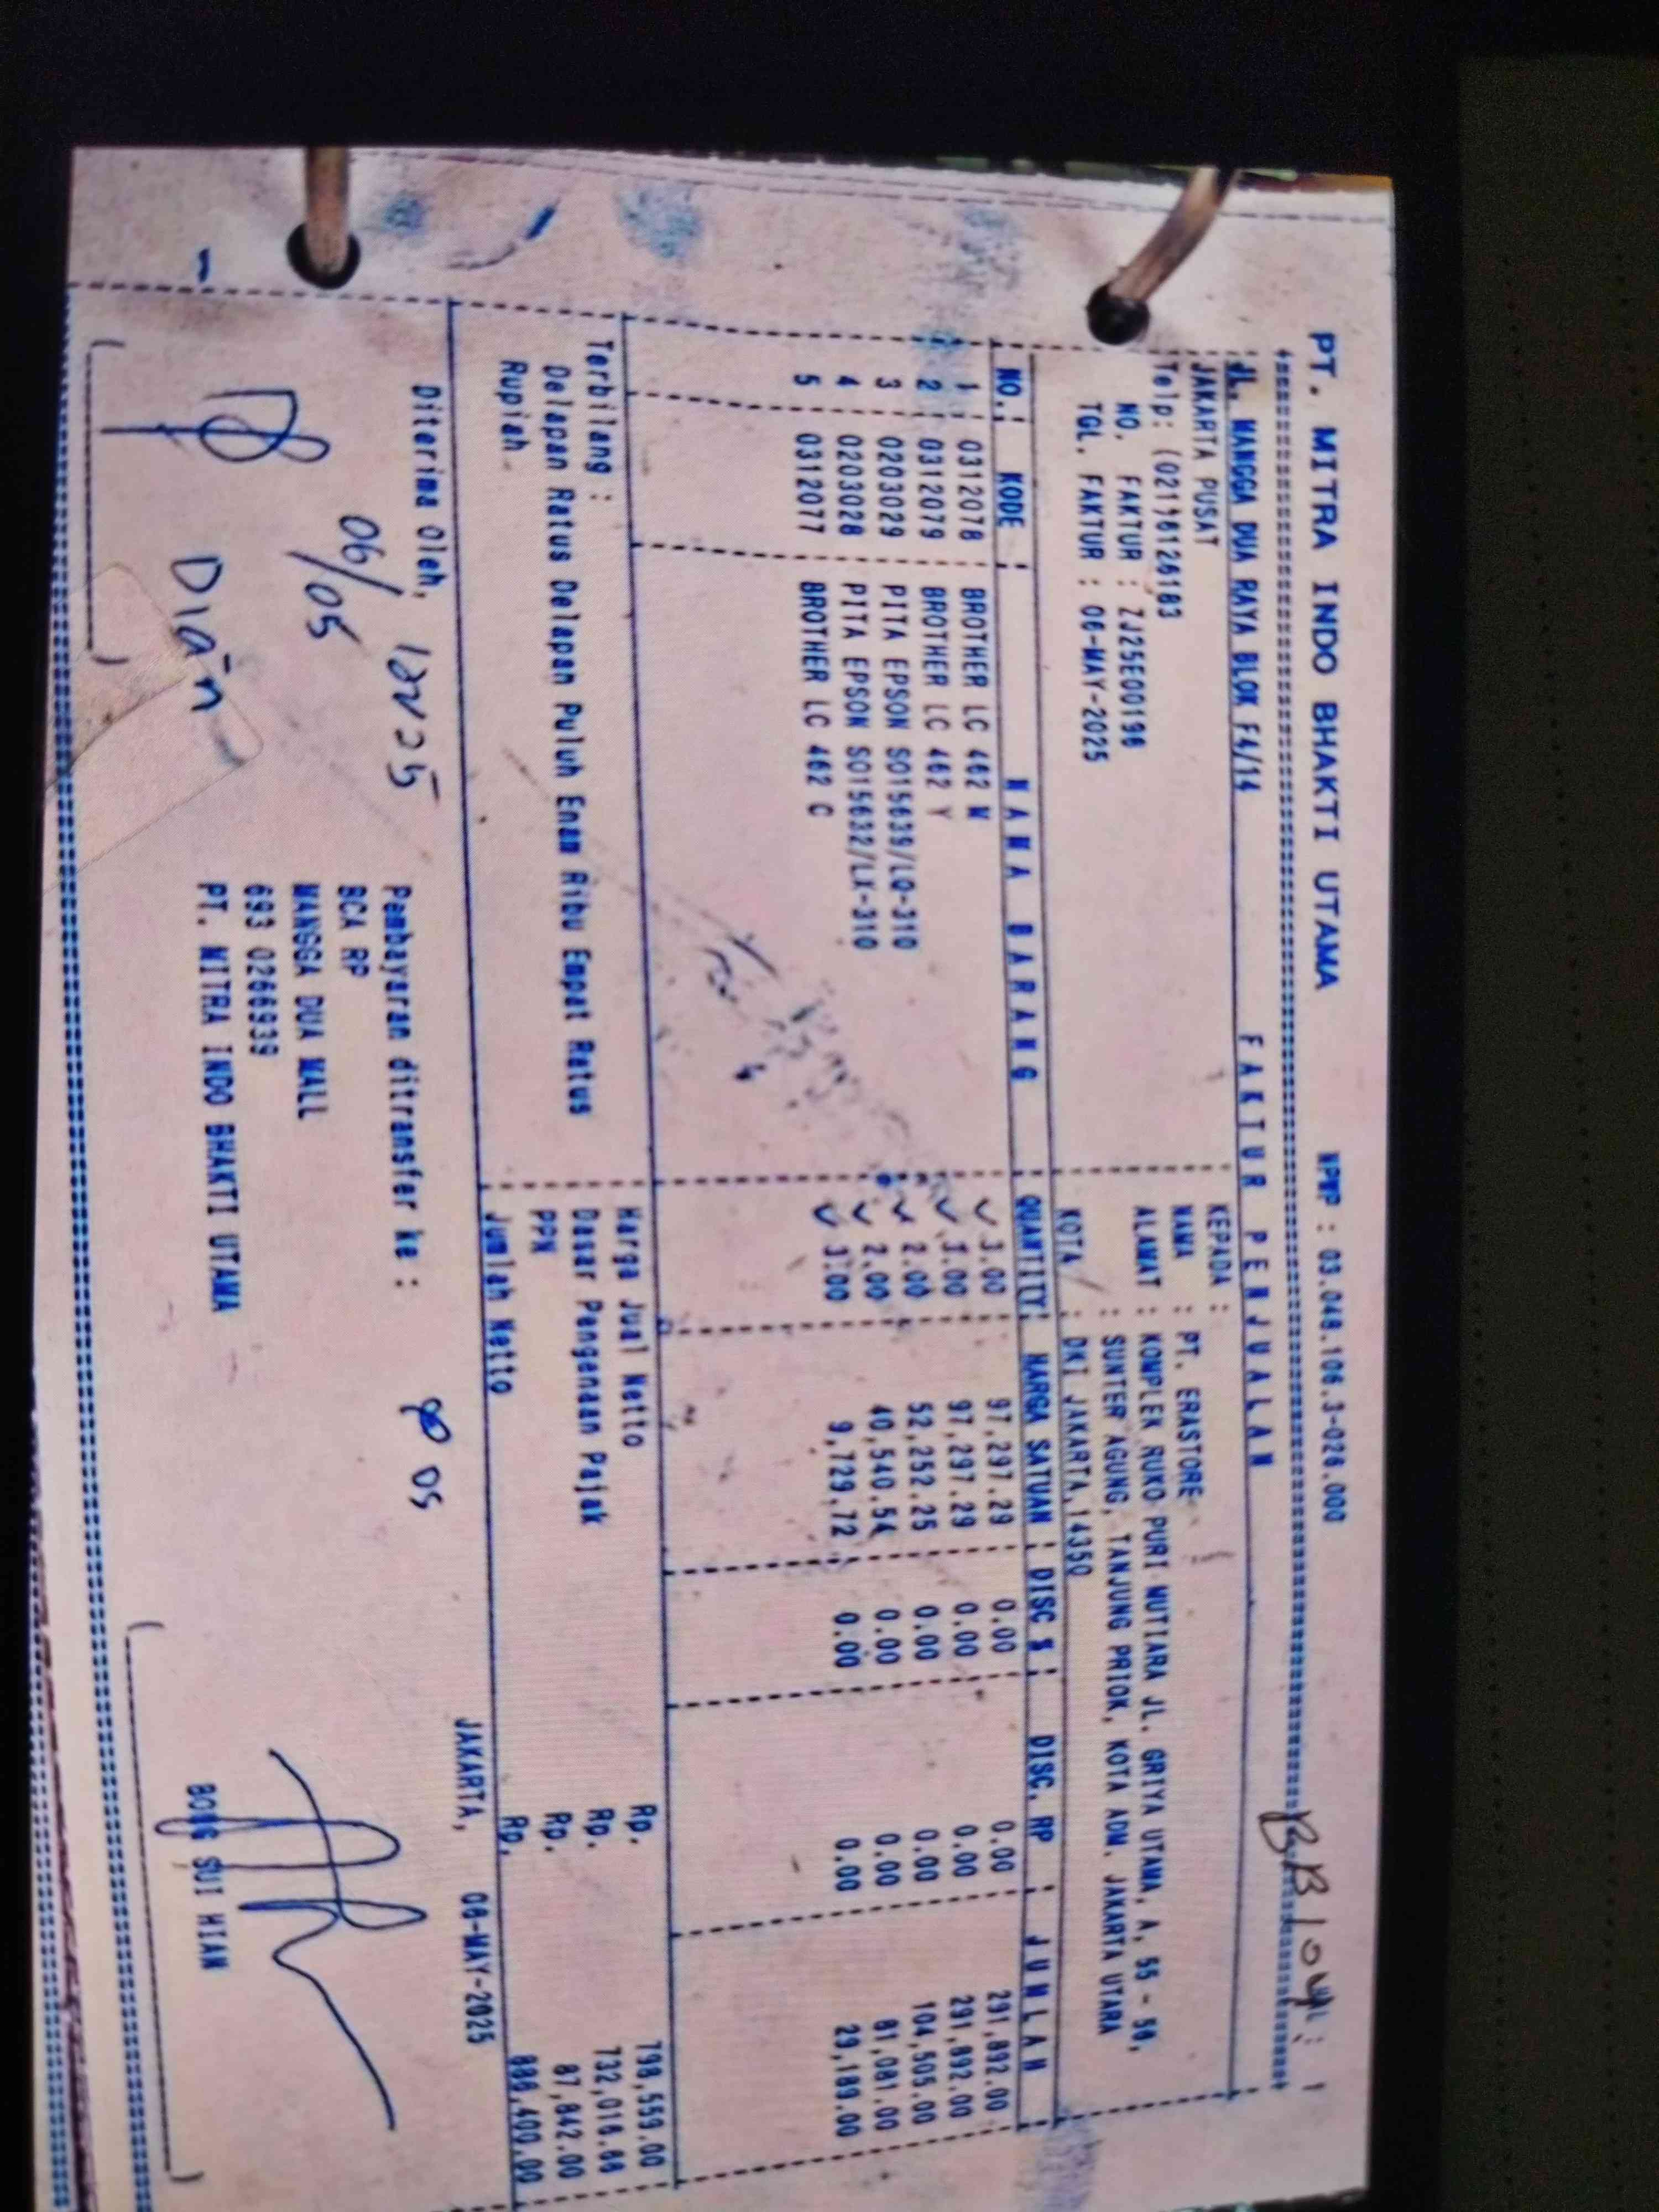 PT. MITRA INDO BHAKTI UTAMA NPWP : 03.048.106.3-026.000
JL. MANGGA DUA RAYA BLOK F4/14
JAKARTA PUSAT
Telp: (021)6126183
NO. FAKTUR : ZJ25E00196
TGL. FAKTUR : 06-MAY-2025
FAKTUR PENJUALAN
KEPADA :
NAMA : PT. ERASTORE
ALAMAT : KOMPLEK RUKO PURI MUTIARA JL. GRIYA UTAMA, A, 55 - 56,
: SUNTER AGUNG, TANJUNG PRIOK, KOTA ADM. JAKARTA UTARA
KOTA : DKI JAKARTA,14350
NO. KODE NAMA BARANG QUANTITY HARGA SATUAN DISC % DISC. RP JUMLAH
1 0312078 BROTHER LC 462 M 3.00 97,297.29 0.00 0.00 291,892.00
2 0312079 BROTHER LC 462 Y 3.00 97,297.29 0.00 0.00 291,892.00
3 0203029 PITA EPSON SO15639/LQ-310 2.00 52,252.25 0.00 0.00 104,505.00
4 0203028 PITA EPSON SO15632/LX-310 2.00 40,540.54 0.00 0.00 81,081.00
5 0312077 BROTHER LC 462 C 3.00 9,729.72 0.00 0.00 29,189.00
Terbilang :
Delapan Ratus Delapan Puluh Enam Ribu Empat Ratus
Rupiah
Harga Jual Netto Rp. 798,559.00
Dasar Pengenaan Pajak Rp. 732,016.66
PPN Rp. 87,842.00
Jumlah Netto Rp. 886,400.00
Diterima Oleh,
06/05
Dian
Pembayaran ditransfer ke :
BCA RP
MANGGA DUA MALL
693 0266939
PT. MITRA INDO BHAKTI UTAMA
JAKARTA, 06-MAY-2025
BONG SUI HIAN